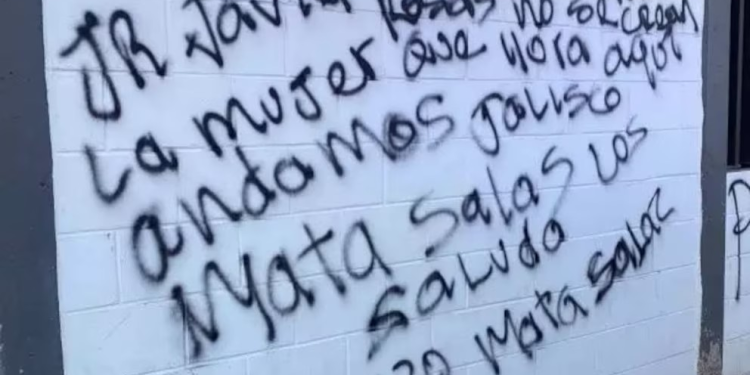 JR Javier Rosas no se crean
La mujer que llora aquí
andamos Jalisco
Mata Salas Los
Saluda
20 Mata Salas